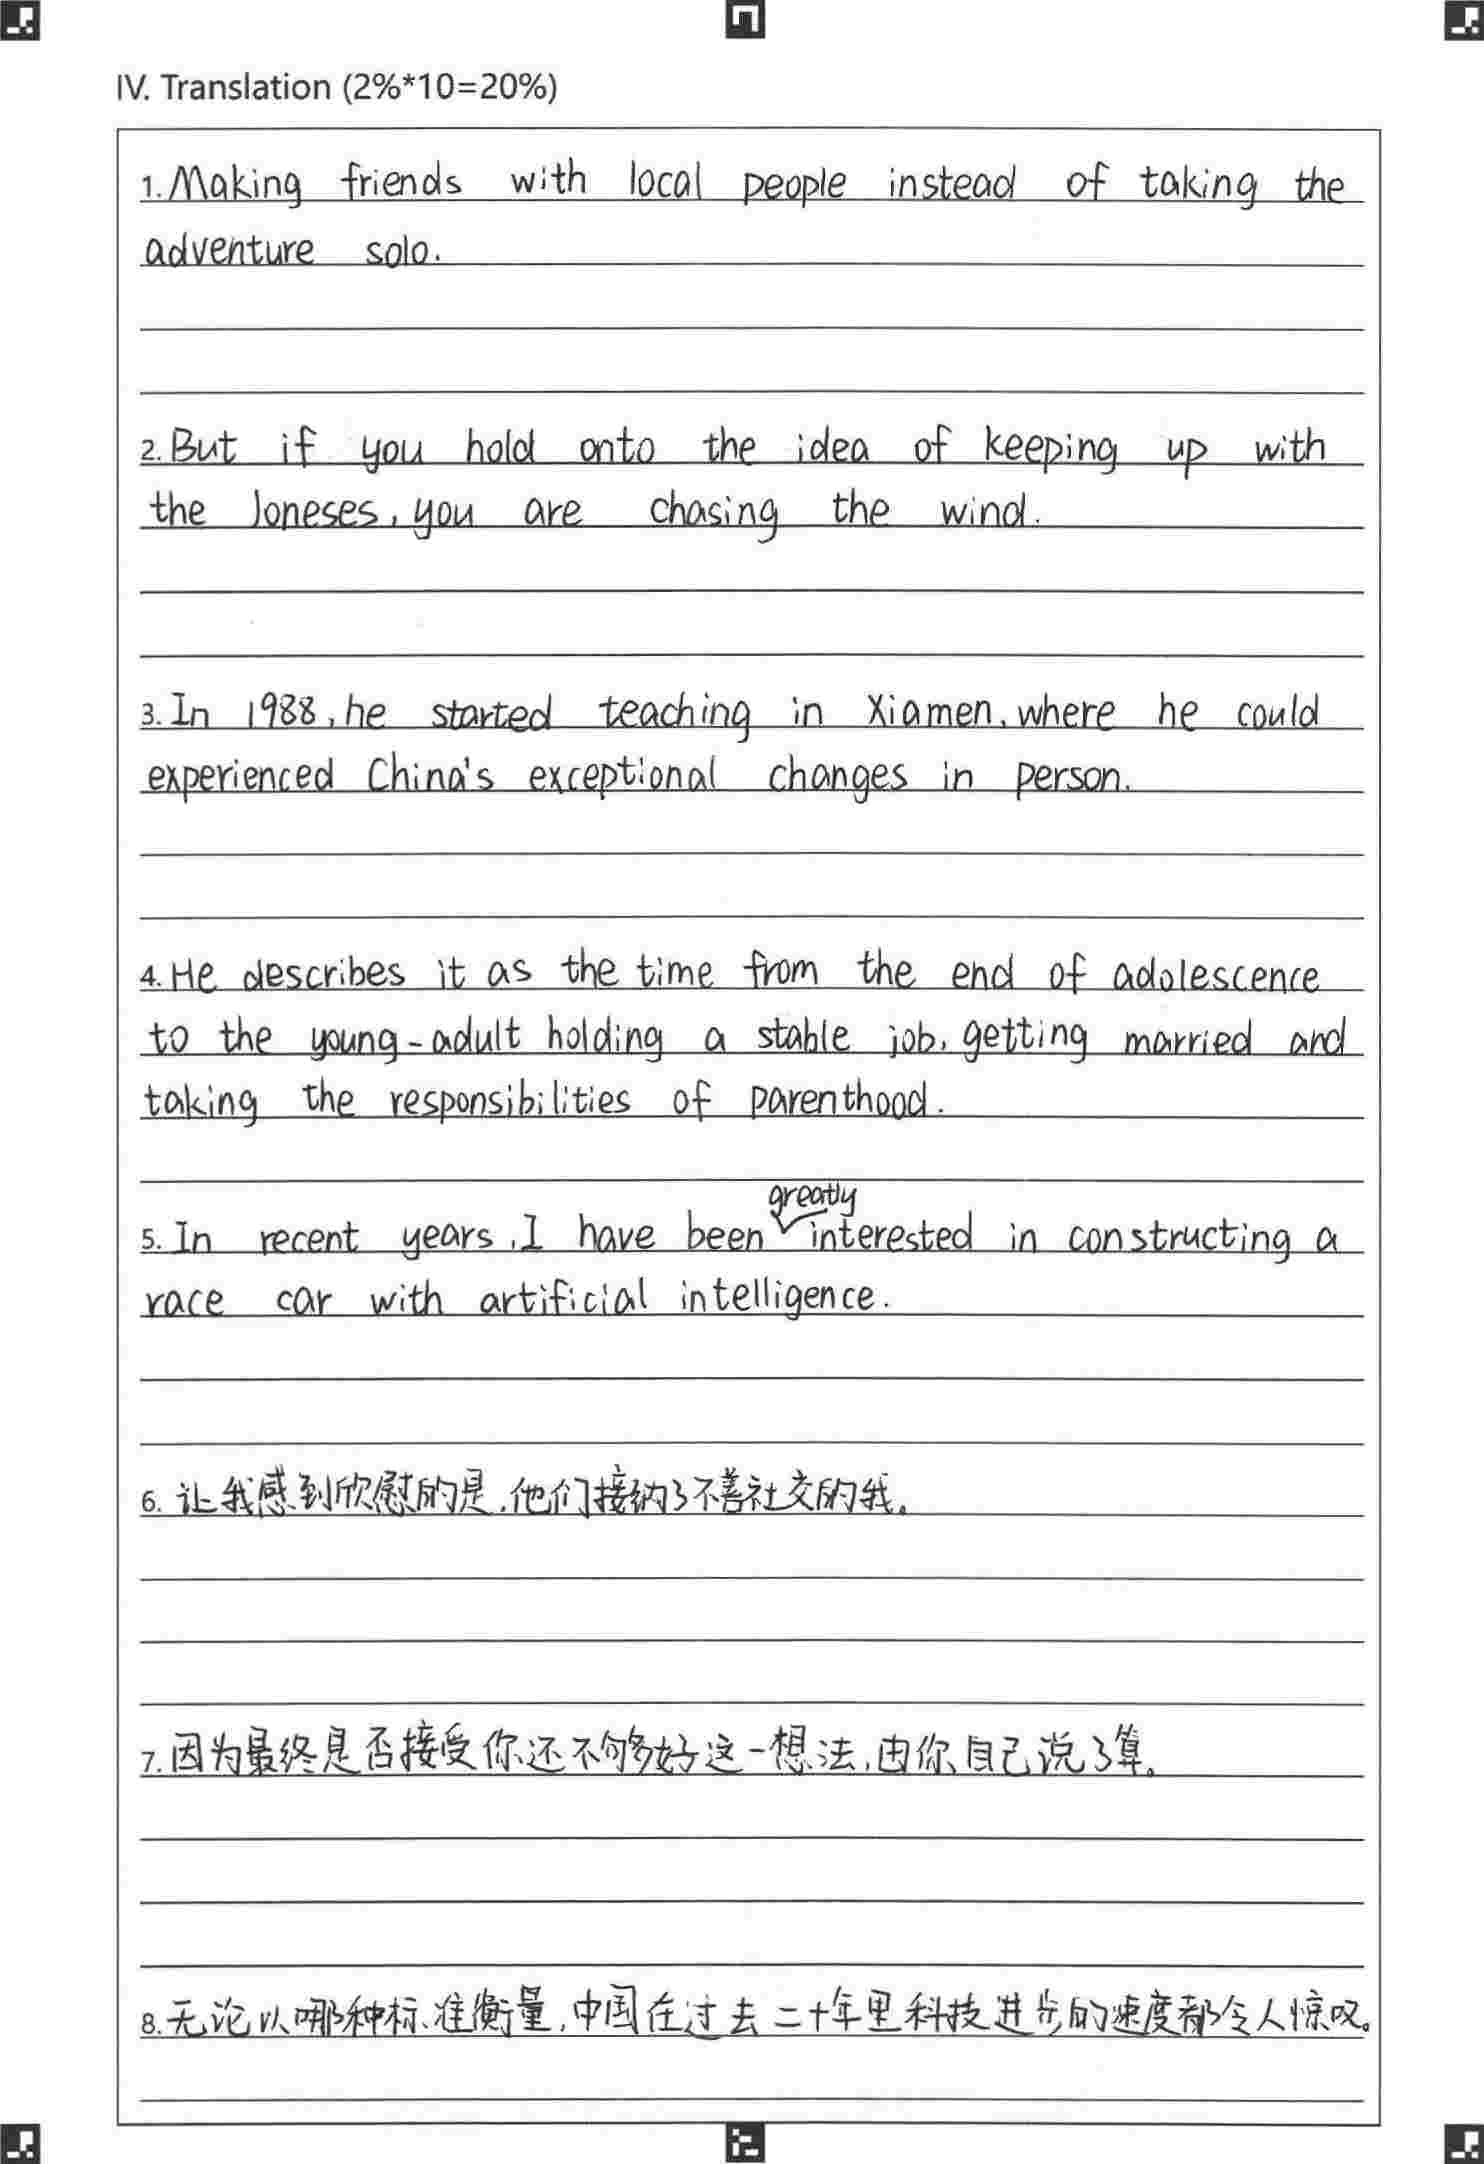 IV. Translation (2%*10=20%)
1. Making friends with local people instead of taking the
adventure solo.
2. But if you hold onto the idea of keeping up with
the Joneses, you are chasing the wind.
3. In 1988, he started teaching in Xiamen, where he could
experienced China's exceptional changes in person.
4. He describes it as the time from the end of adolescence
to the young-adult holding a stable job, getting married and
taking the responsibilities of parenthood.
greatly
5. In recent years, I have been interested in constructing a
race car with artificial intelligence.
6. 让我感到欣慰的是,他们接纳了不善社交的我。
7. 因为最终是否接受你还不够好这一想法,由你自己说了算。
8. 无论以哪种标准衡量,中国在过去二十年里科技进步的速度都令人惊叹。